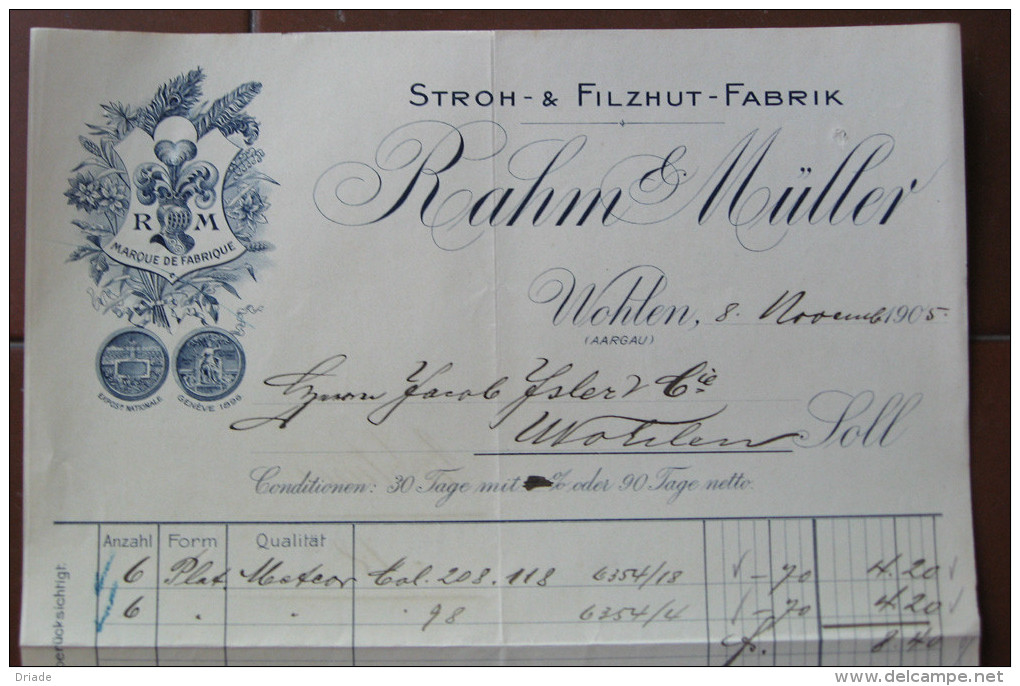 STROH- & FILZHUT-FABRIK
Rahm & Müller
R M
MARQUE DE FABRIQUE
EXPOST NATIONALE
GENÈVE 1896
Wohlen, 8. Novemb 1905.
(AARGAU)
Herren Jacob Isler & Cie
Wohlen Soll
Conditionen: 30 Tage mit % oder 90 Tage netto.
Anzahl Form Qualität
6 Plat. Meteor Col. 208. 118 6354/18 -70 4.20
6 " " " 98 6354/4 -70 4.20
fr. 8.40
berücksichtigt.
Driade
www.delcampe.net